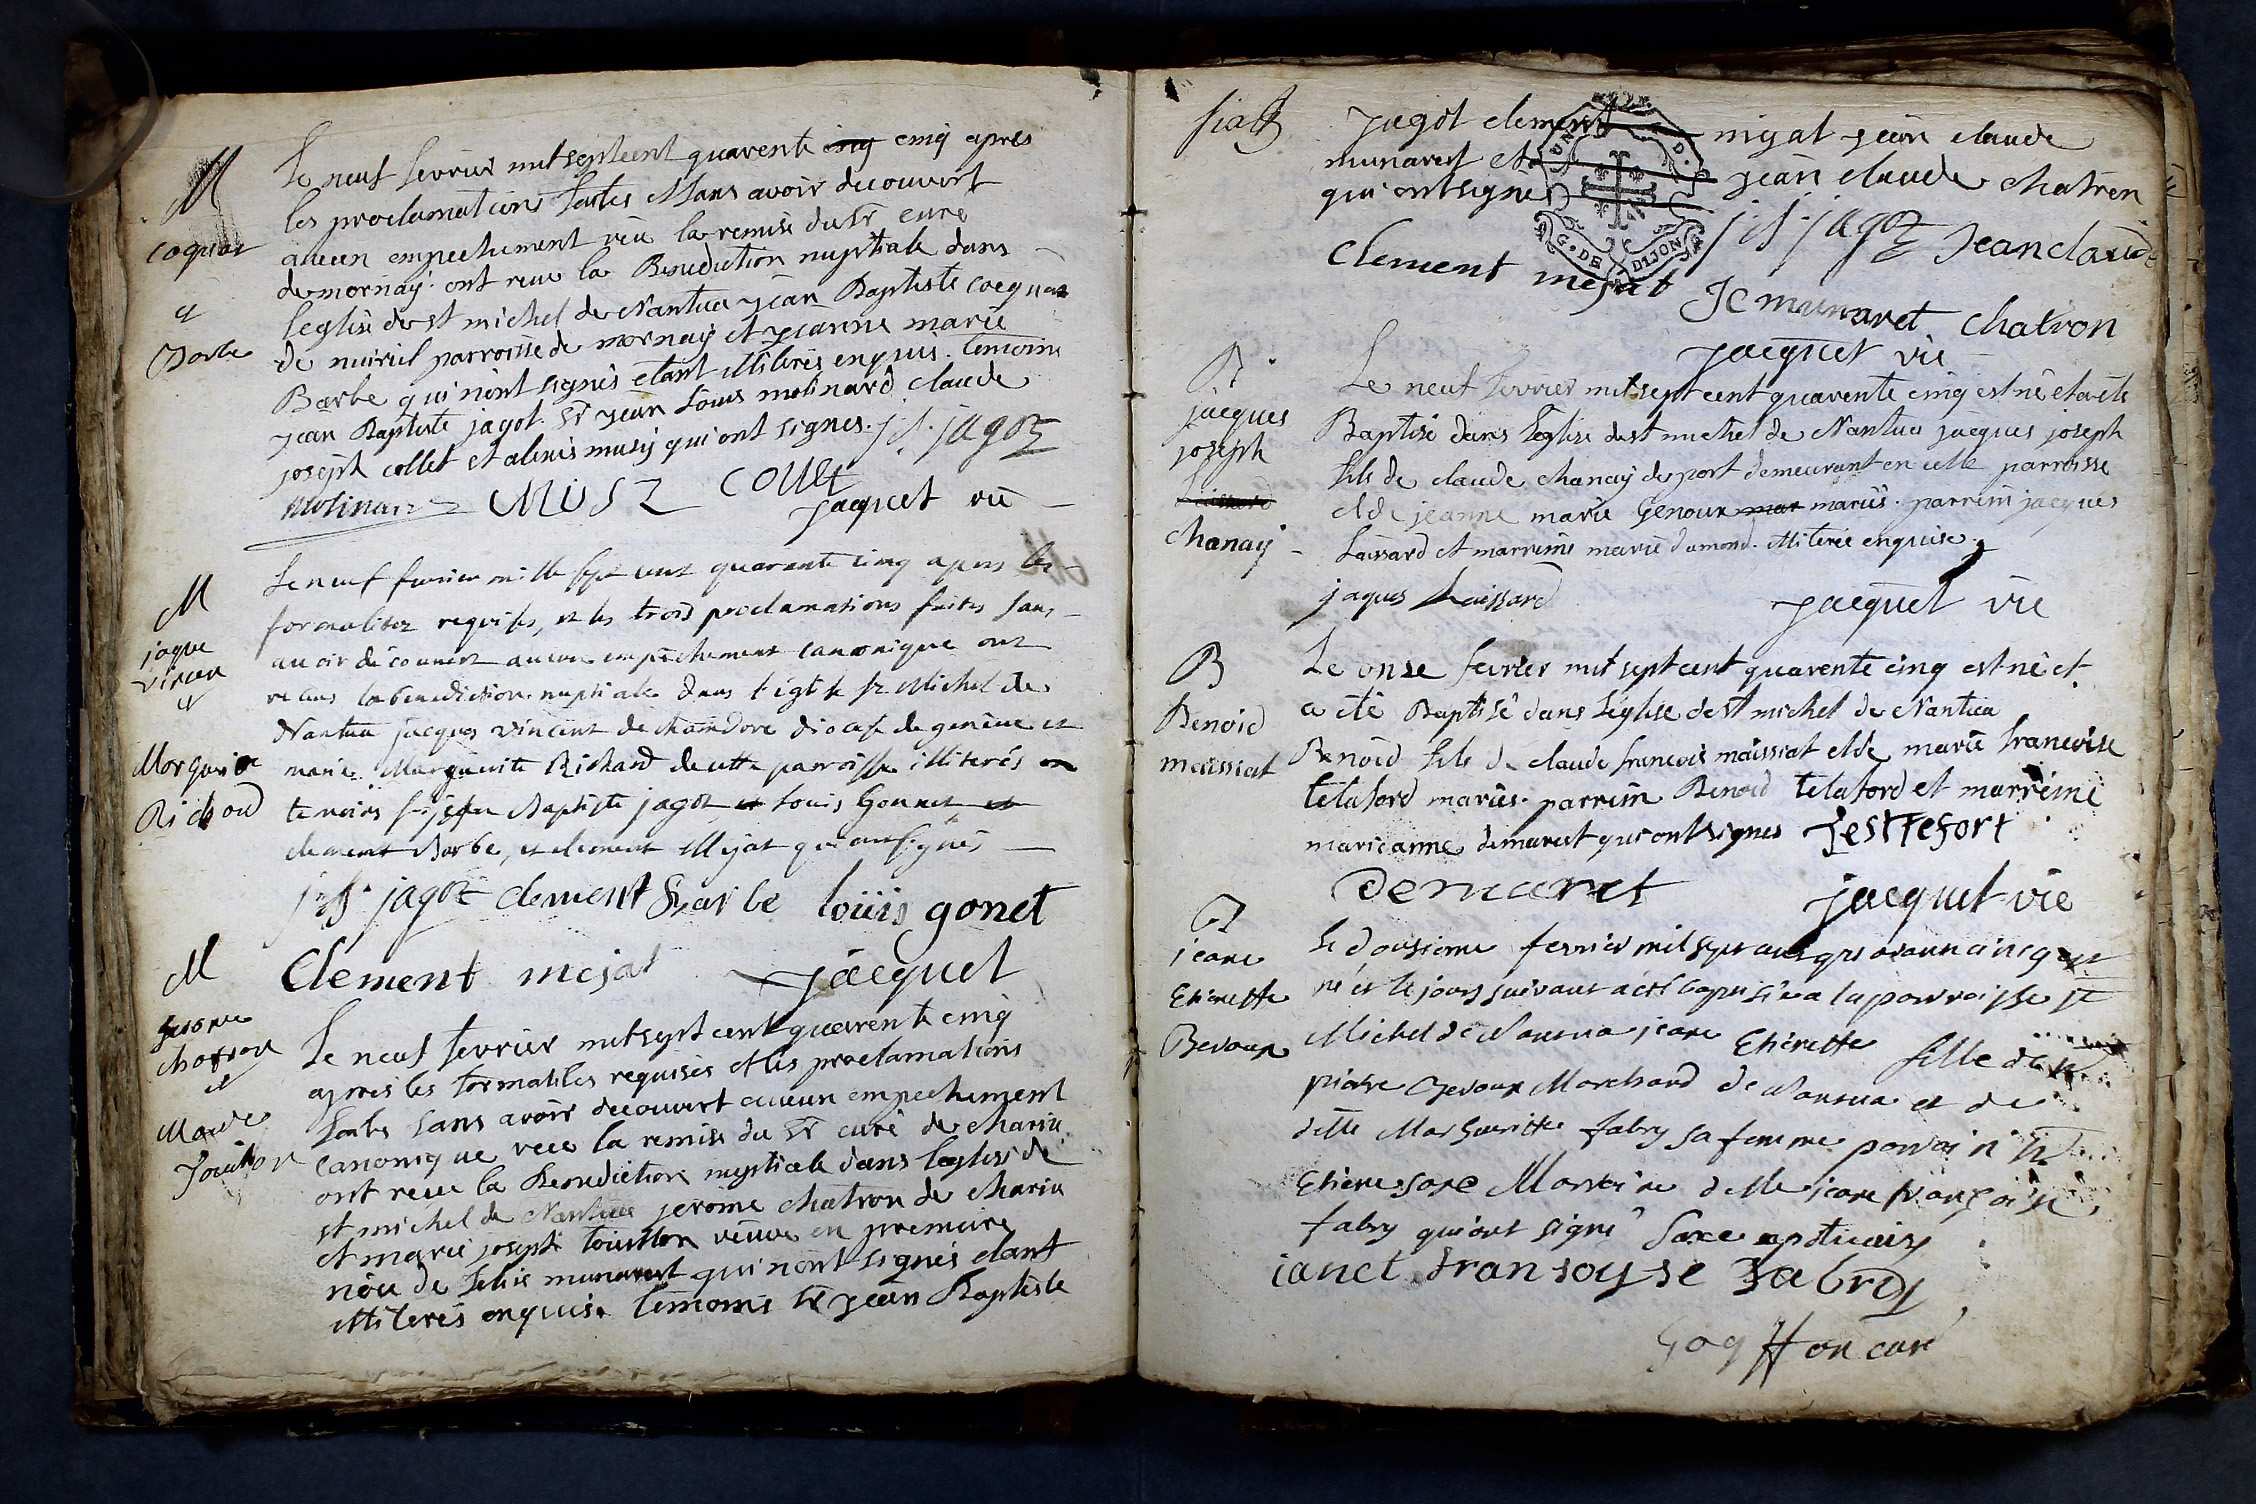 M
coquas
et
Barbe
Le neuf fevrier mil septcent quarente cinq cinq apres
les proclamations faites et sans avoir decouvert
aucun empechement veu la remise du Sr curé
de mornaÿ ont receu la Benediction nuptiale dans
leglise de st michel de Nantua jean Baptiste coequas
de nuiriel parroisse de mornaÿ et jeanne marie
Barbe qui n'ont signés etant illiterés enquis. temoins
jean Baptiste jagot. Sr jean Louis molinard claude
joseph collet et alexis musÿ qui ont signes. j. b. jagot
Molinard MUSZ COllet
jacquet vic
M
jaque
vincen
et
Marguerite
Richard
Le neuf fevrier mille sept cent quarante cinq apres les
formalitez requises, et les trois proclamations faites sans
avoir découvert aucun empêchement canonique ont
recus la benediction nuptiale dans l'église St Michel de
Nantua jacques vincent de chamdore diocese de genêve et
marie Marguerite Richard de cette parroisse illiterés
temoins Sr jean Baptiste jagot et Louis Gonnet et
clement Barbe, et clement Mejat qui ont signés
j. b. jagot clement barbe loüis gonet
Clement mejat jacquet
M
jerome
chatron
et
Marie
Touillon
Le neuf fevrier mil sept cent quarente cinq
apres les formalites requises et les proclamations
faites sans avoir decouvert aucun empechement
canonique veu la remise du Sr curé de charix
ont receu la Benediction nuptiale dans leglise de
st michel de Nantua jerome chatron de charix
et marie josepte touillon veuve en premiere
nôce de felix munaret qui n'ont signés etant
illiterés enquis. temoins Sr jean Baptiste
jagot clement mejat jean claude
munaret et jean claude chatron
qui ont signe
G. DE DIJON
j. b. jagot Jean claude
Clement mejat JC munaret chatron
jacquet vic
B
jacques
joseph
chanaÿ
Le neuf fevrier mil sept cent quarente cinq est né et a ete
Baptisé dans l'eglise de st michel de Nantua jacques joseph
fils de claude chanaÿ de port demeurant en cette parroisse
et de jeanne marie Genoux mar mariés. parrein jacques
Laissard et marreine marie dumond. illiterée enquise.
jaques Laissard jacquet vic
B
Benoid
maissiat
Le onze fevrier mil sept cent quarente cinq est né et
a été Baptisé dans l'église de st michel de Nantua
Benoid fils de claude francois maissiat et de marie francoise
tetaford mariés. parrein Benoid tetaford et marreine
marie anne demaret qui ont signes Testefort
Demaret jacquet vic
B
jeane
Etienette
Bevoux
Le dousieme fevrier mil sept cent quarante cincq est
né et le jours suivant a été baptisé a la parroisse St
Michel de Nantua jeane Etienette fille de Sr
piaire Bevoux Marchand de Nantua et de
dette Marguerite fabry sa femme parrain Sr
Etiene saxe Marraine delle jeane françoise
fabry qui ont signé Saxe apoticaire
ianet fransoyse Fabry
Goyffon curé